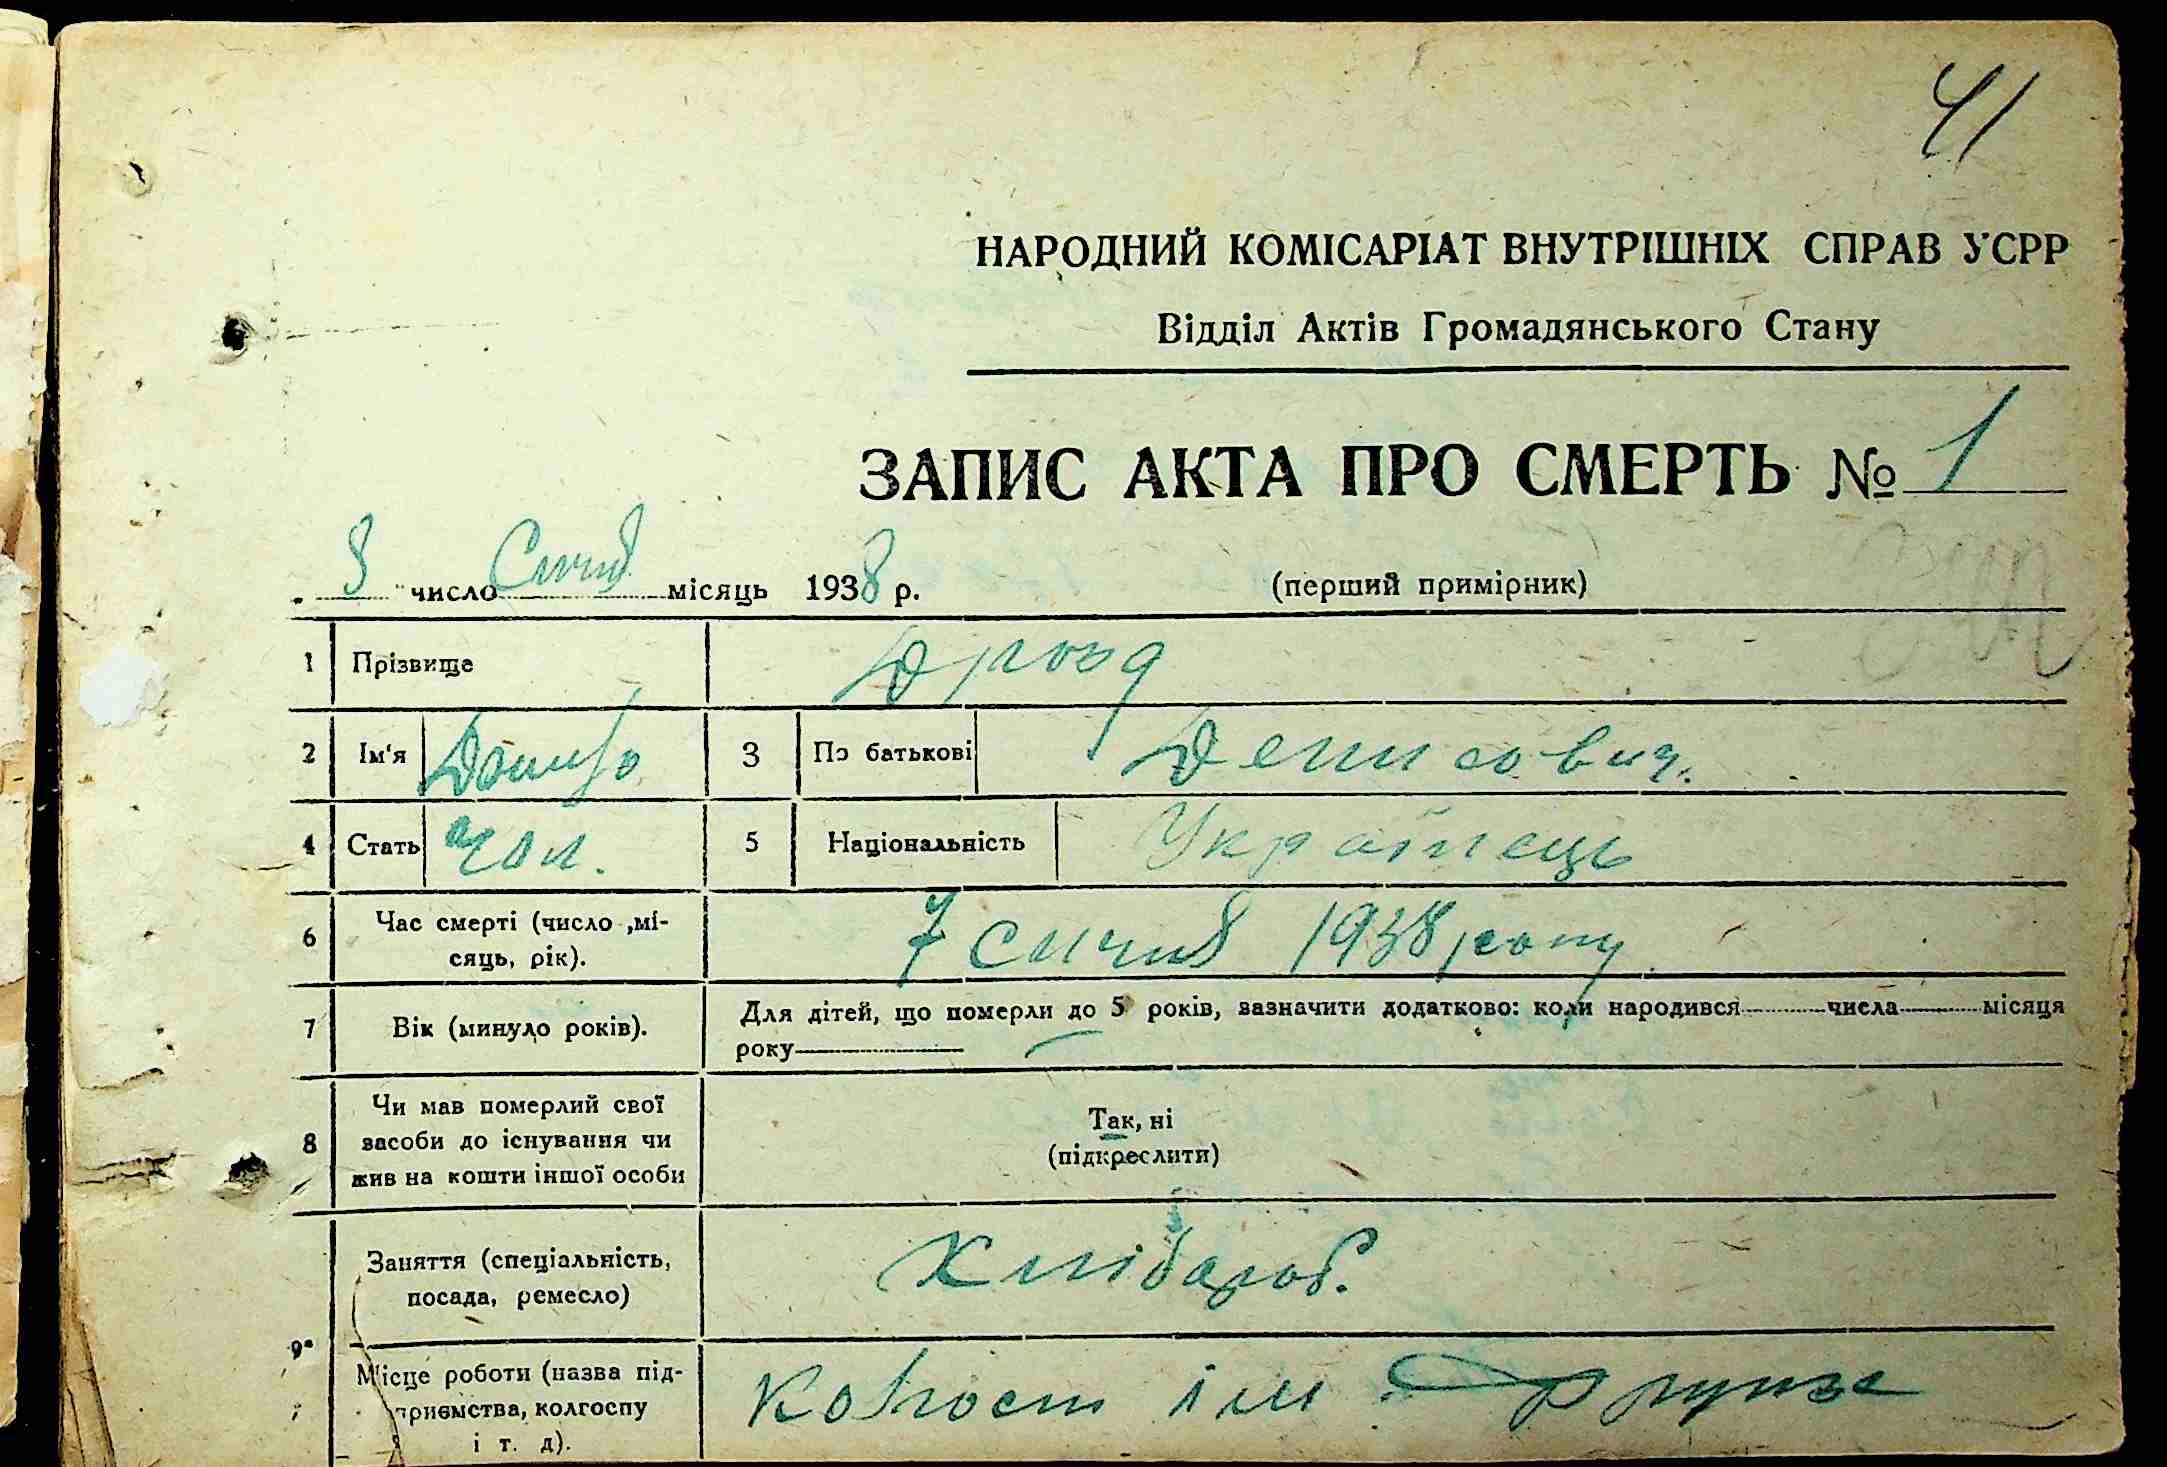 41
НАРОДНИЙ КОМІСАРІАТ ВНУТРІШНІХ СПРАВ УСРР
Відділ Актів Громадянського Стану
ЗАПИС АКТА ПРО СМЕРТЬ № 1
8 число Січня місяць 1938 р. (перший примірник)
1 Прізвище Дрозд
2 Ім'я 3 По батькові Денисович.
4 Стать чол. 5 Національність Українець
6 Час смерті (число ,мі-
сяць, рік). 7 січня 1938 року
7 Вік (минуло років). Для дітей, що померли до 5 років, зазначити додатково: коли народився числа місяця
року
8 Чи мав померлий свої
засоби до існування чи
жив на кошти іншої особи
Так, ні
(підкреслити)
9а Заняття (спеціальність,
посада, ремесло) Хлібороб.
Місце роботи (назва під-
приємства, колгоспу
і т. д). Колгосп ім Фрунзе